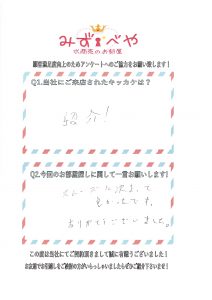 みず べや
水商売のお部屋
顧客満足度向上のためアンケートへのご協力をお願い致します!
Q1.当社にご来店されたキッカケは?
紹介!
Q2.今回のお部屋探しに関して一言お願いします!
スムーズに決まって
良かったです。
ありがとうございました。
この度は当社にてご契約頂きまして誠に有難うございました!
お友達でお引越しをご検討の方がいらっしゃいましたらぜひご紹介下さいませ!